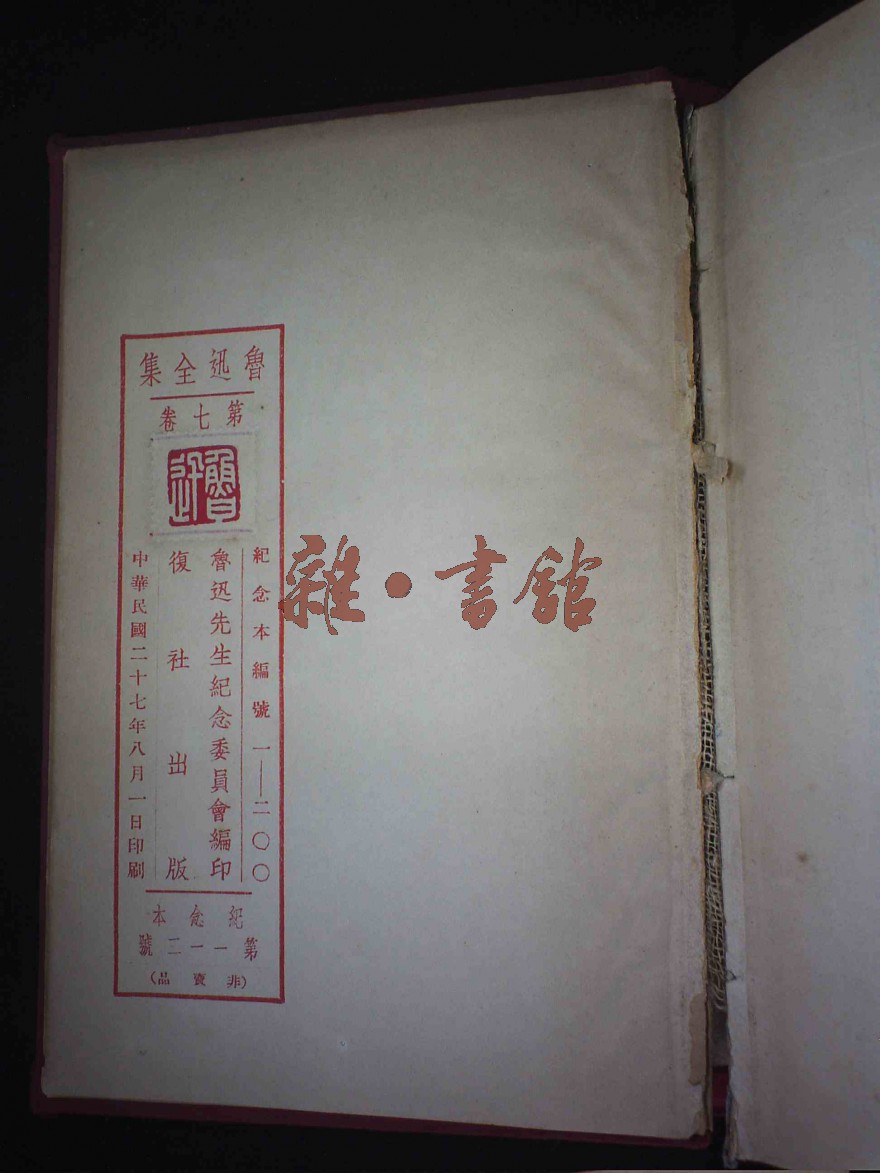 魯迅全集
第七卷
魯迅
紀念本編號一——二〇〇
魯迅先生紀念委員會編印
復社出版
中華民國二十七年八月一日印刷
紀念本
第一一二號
（非賣品）
雜·書館